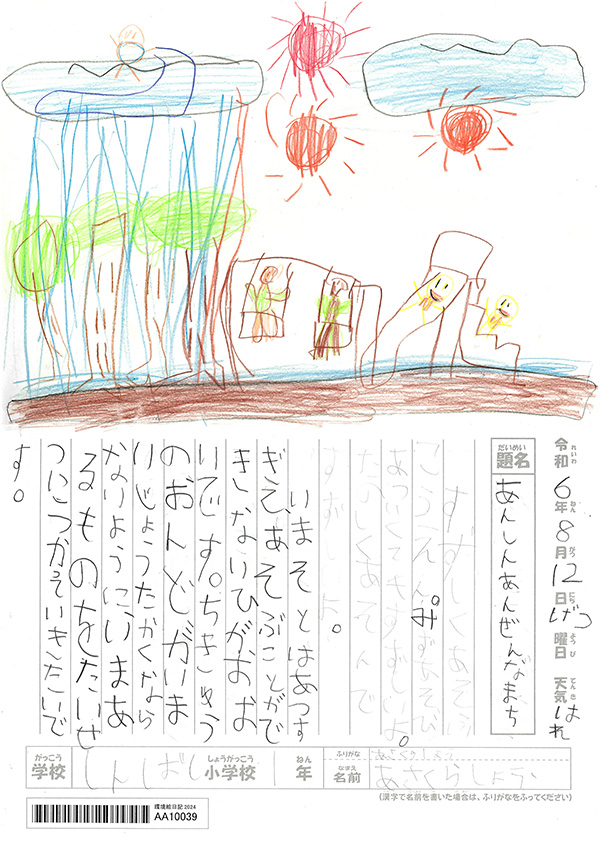 令和6年8月12日げつ曜日 天気はれ
れいわ ねん がつ にち ようび てんき
だいめい
題名
あんしんあんぜんなまち
すずしくあそべ
こうえん。みずあそび
たのしくあそんで
いまそとはあつす
ぎえ、あそぶことがで
きないひがおお
いです。ちきゅう
のおんどがいま
いじょうたかくなら
ないようにいまあ
るものをたいせ
つにつかっていきたいで
す。
がっこう しょうがっこう ねん ふりがな
学校 しんばし 小学校 1年
なまえ
名前 あさくらしょう
(漢字で名前を書いた場合は、ふりがなをふってください)
環境絵日記2024
AA10039